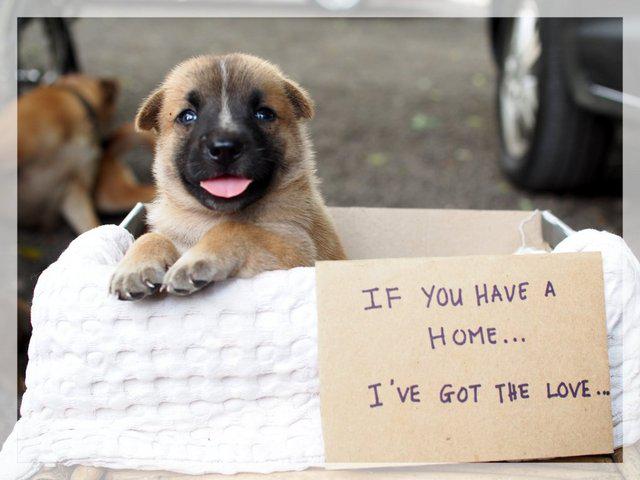 IF YOU HAVE A
HOME...
I'VE GOT THE LOVE...